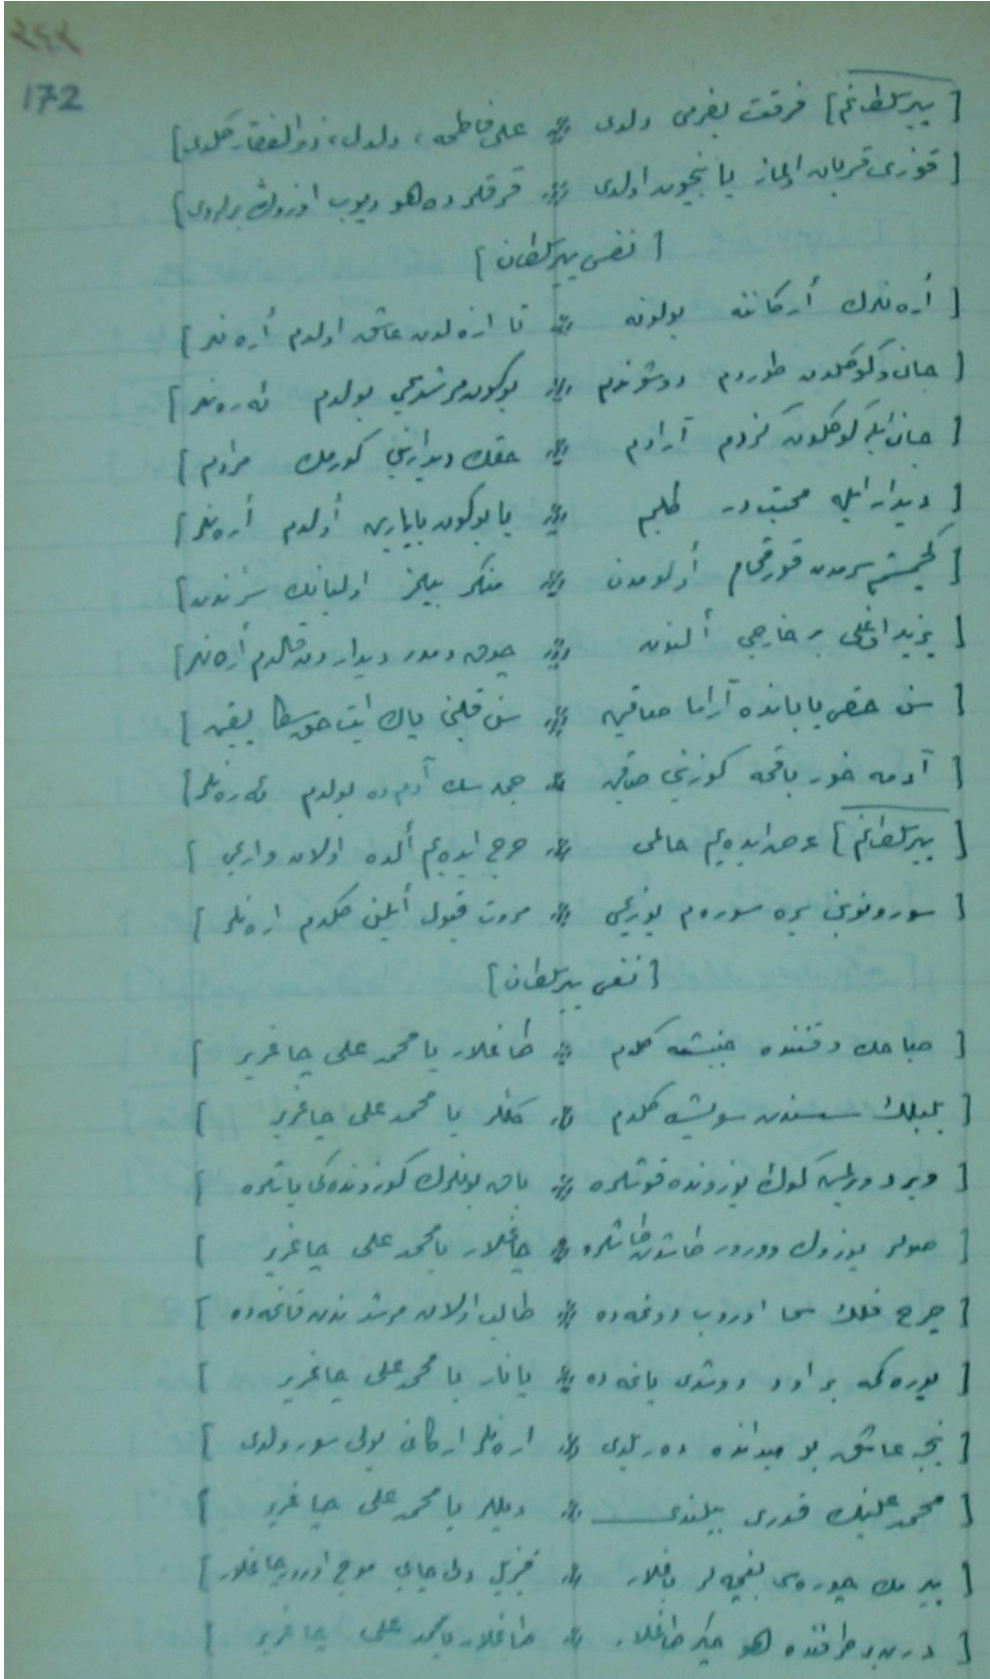 ٢٤٢
172
[ پیر سلطانم ] فرقت بغرمی دلدی ⁘ علی فاطمه، دلدل، ذوالفقار کلدی ]
[ قوزی قربان اولماز یا نیچون اولدی ⁘ قرقلرده هو دیوب
[ نفس پیر سلطان ]
[ أره نلرك أركاننه یولونه ⁘ تا ازلدن عاشق اولدم أره نلر ]
[ جان وكوكلدن طوردم دوشوندم ⁘ بوكون مرشدیمی بولدم ئه ره نلر ]
[ جان ایله كوكلدن كزدم آرادم ⁘ حقك دیدارینی كورمك مرادم ]
[ دیدار ایله محبتدر طلبم ⁘ یا بوكون یا یارین أولدم أره نلر ]
[ كچمشم سرمدن قورقمام أولومدن ⁘ منكر بیلمز اولیانك سرندن ]
[ یزید اوغلی بر خارجی ألندن ⁘ چوق دمدر دیداردن قالدم أره نلر ]
[ سن حقی یابانده آراما صاقین ⁘ سن قلبنی پاك ایت حق سكا یقین ]
[ آدمه خور باقمه كوزینی صاقین ⁘ جمله سن آدمده بولدم ئه ره نلر ]
[ پیر سلطانم ] عرض ایده یم حالمی ⁘ خرج ایده یم ألده اولان واریمی ]
[ سورونوبن یره سورەم یوزیمی ⁘ مروت قبول أیلین كلدم اره نلر ]
[ نفس پیر سلطان ]
[ صباحك وقتنده جنبشه كلدم ⁘ طاغلار یا محمد علی چاغریر ]
[ بلبلك سسندن سویشه كلدم ⁘ كللر یا محمد علی چاغریر ]
[ كوك یوزونده قوشلره ⁘ باق بونلرك كوزونده كی یاشلره ]
[ صولر یوزون دورور طاشدن طاشلره ⁘ چاغلار یا محمد علی چاغریر ]
[ چرخ فلك سما اوروب دونمه ده ⁘ طالب اولان مرشدندن قانمه ده ]
[ یوره كمه بر اود دوشدی یانمه ده ⁘ یانار یا محمد علی چاغریر ]
[ نیجه عاشق بو میدانده ده ریلدی ⁘ اره نلر اركانی یولی سورولدی ]
[ محمد علینك قدری بیلندی ⁘ دیللر یا محمد علی چاغریر ]
[ چوره سی بغچه لر باغلار ⁘ قیزیل دلی چای موج اورر چاغلار ]
[ طرفنده هو چكر طاغلار ⁘ طاغلار یا محمد علی چاغریر ]